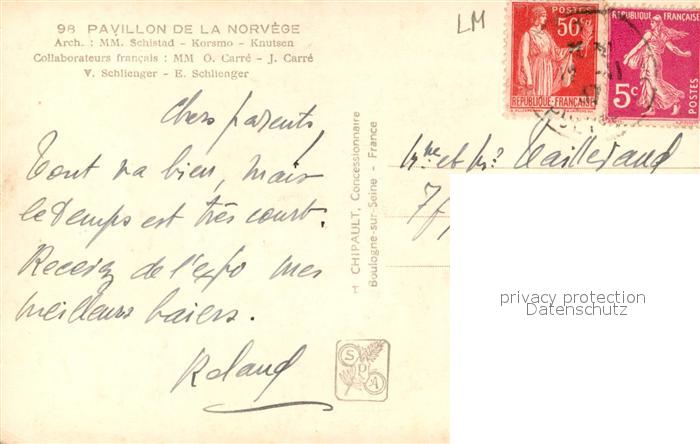 98 PAVILLON DE LA NORVÈGE
Arch. : MM. Schistad - Korsmo - Knutsen
Collaborateurs français : MM O. Carré - J. Carré
V. Schlienger - E. Schlienger
LM
50c
RÉPUBLIQUE FRANÇAISE
RÉPUBLIQUE FRANÇAISE
5c
POSTES
Chers parents,
Tout va bien, mais
le temps est très court.
Recevez de l'expo mes
meilleurs baisers.
Roland
H CHIPAULT, Concessionnaire
Boulogne-sur-Seine - France
SPA
Mme et Mr
privacy protection
Datenschutz